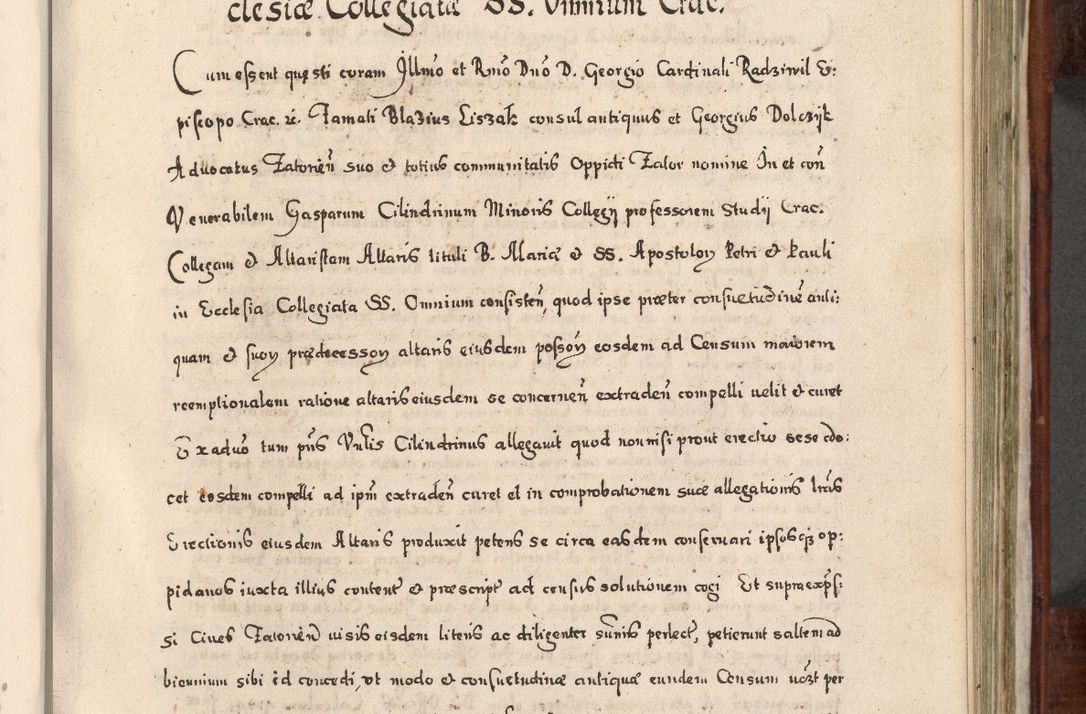 clesiæ Collegiatæ SS. Omnium Crac.
Cum essent questi coram Illmo et Rmo Dno D. Georgio Cardinali Radziwil E:
piscopo Crac. &c. Famati Blazius Liszak consul antiquus et Georgius Dolczyk
Advocatus Zatorień suo & totius communitatis Oppidi Zator nomine In et coń
Venerabilem Gasparum Cilindrinum Minoris Collegij professorem Studij Crac.
Collegam & Altaristam Altaris tituli B. Mariæ & SS. Apostoloꝝ Petri & Pauli
in Ecclesia Collegiata SS. Omnium consisteń, quod ipse præter consuetudinē anti:
quam & suoꝝ prædecessoꝝ altaris eiusdem possoꝝ eosdem ad Censum maiorem
reemptionalem ratione altaris eiusdem se concerneń extradeń compelli velit & curet
Ex aduō tum pńs Vnlis Cilindrinus allegavit quod nonnisi prout erectio sese do:
cet eosdem compelli ad ipm extradeń curet et in comprobationem suæ allegationis lrās
Erectionis eiusdem Altaris produxit petens se circa easdem conservari ipsosqꝫ op:
pidanos iuxta illius content & præscript ad census solutionem cogi Et supraexps:
si Cives Zatorień visis eisdem literis ac diligenter sūmis perlect, petierunt saltem ad
biennium sibi id concedi, vt modo & consuetudine antiqua eundem Censum per